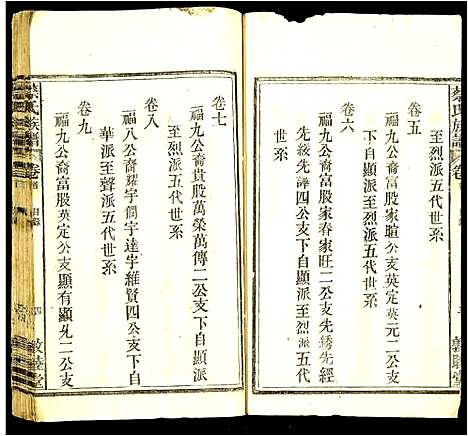 卷五
福九公裔富股家暄公支英定英元二公支下自顯派
至烈派五代世系
卷六
福九公裔富股家春家旺二公支先綉先經
先綾先譁四公支下自顯派至烈派五代世系
卷七
福九公裔貴股萬榮萬傳二公支下自顯派
至烈派五代世系
卷八
福八公裔耀宇僴宇達宇維賢四公支下自
華派至聲派五代世系
卷九
福九公裔富股英定公支顯有顯
二公支
蔡氏族譜
卷首
目錄
四
敦睦堂